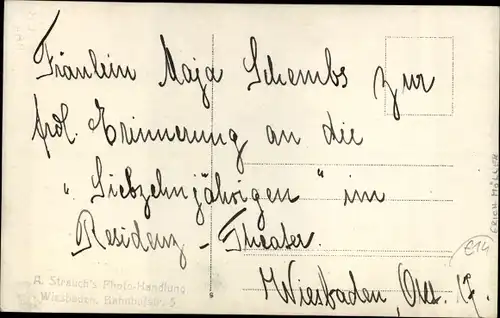 Fräulein Maja Schembs zur
frdl. Erinnerung an die
„Siebzehnjährigen" im
Residenz-Theater.
Wiesbaden, Okt. 17.
A. Strauch's Photo-Handlung
Wiesbaden, Bahnhofstr. 5
€14